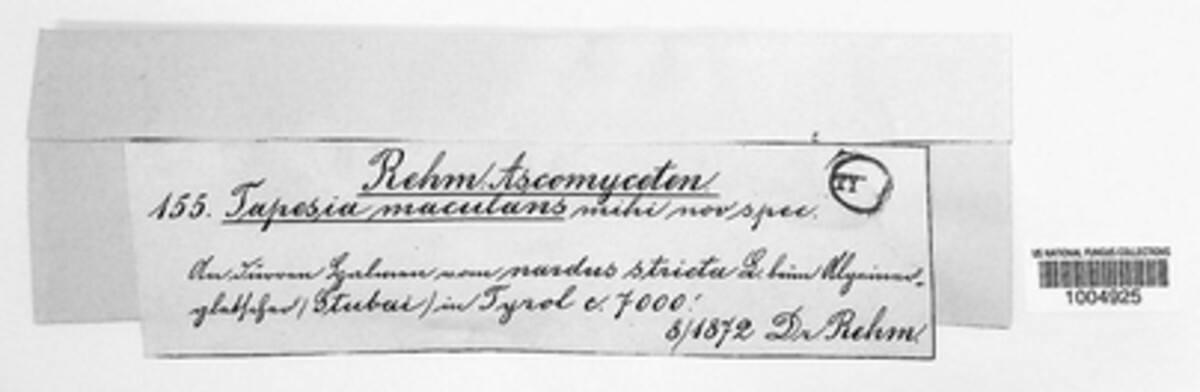 Rehm. Ascomyceten
TY
155. Tapesia maculans mihi nov spec.
An dürren Halmen von nardus stricta L. beim Alpeiner-
gletscher (Stubai) in Tyrol c. 7000'.
8/1872 Dr Rehm.
US NATIONAL FUNGUS COLLECTIONS
1004925